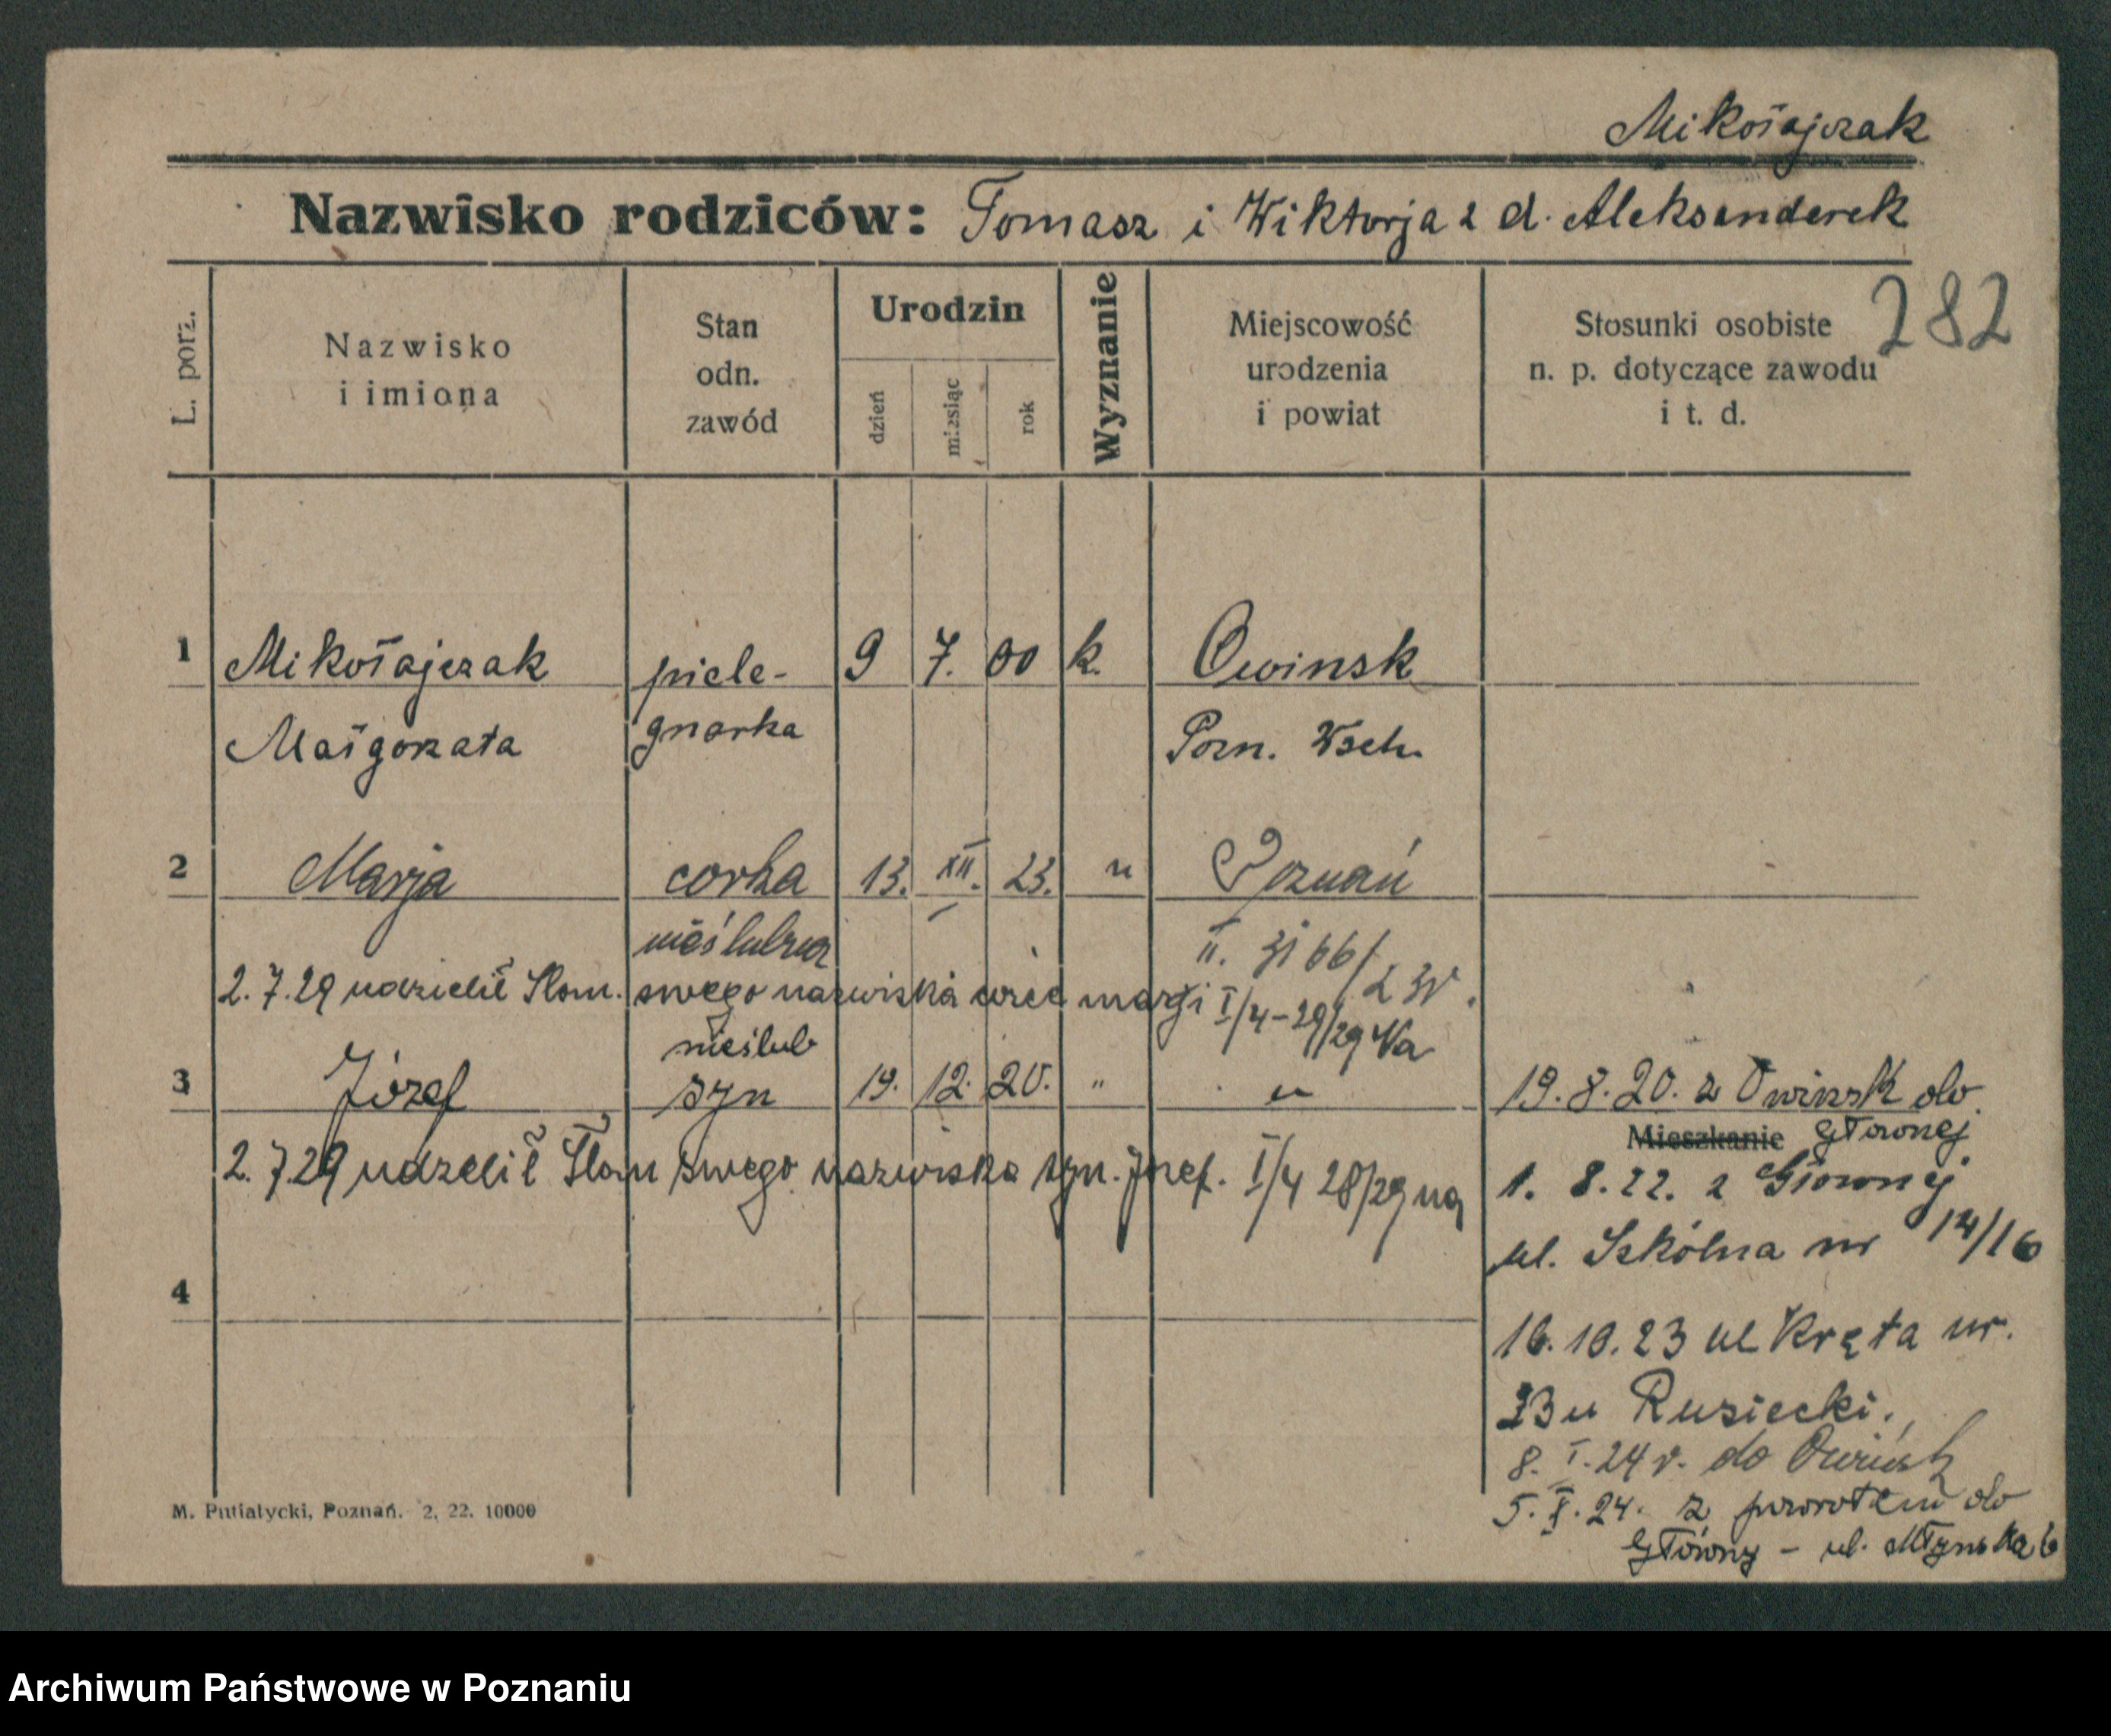 Mikołajczak
Nazwisko rodziców: Tomasz i Wiktorja z d. Aleksanderek
282
L. porz.
Nazwisko
i imiona
Stan
odn.
zawód
Urodzin
dzień
miesiąc
rok
Wyznanie
Miejscowość
urodzenia
i powiat
Stosunki osobiste
n. p. dotyczące zawodu
i t. d.
1 Mikołajczak piele- 9 7. 00 k. Owinsk
Małgorzata gnarka Pozn. Wsch.
2 Marja corka 13. XII. 23. " Poznań
nieślubna II.
2.7.29 udzielił swego nazwiska I/4-29/29
nieślub
3 Józef syn 19. 12. 20. " " 19.8.20. z Owinsk do
Mieszkanie Głownej
2.7.29 udzelił swego nazwiska syn. Józef. I/4 28/29 1. 8.22. z Głownej
ul. Szkólna nr 14/16
4
16.10.23 ul Kręta nr.
23 u Rusiecki.
8. I. 24 r. do Owińsk
5. X. 24. z powrotem do
Główny - ul. Młynska 6
M. Putiatycki, Poznań. 2, 22. 10000
Archiwum Państwowe w Poznaniu